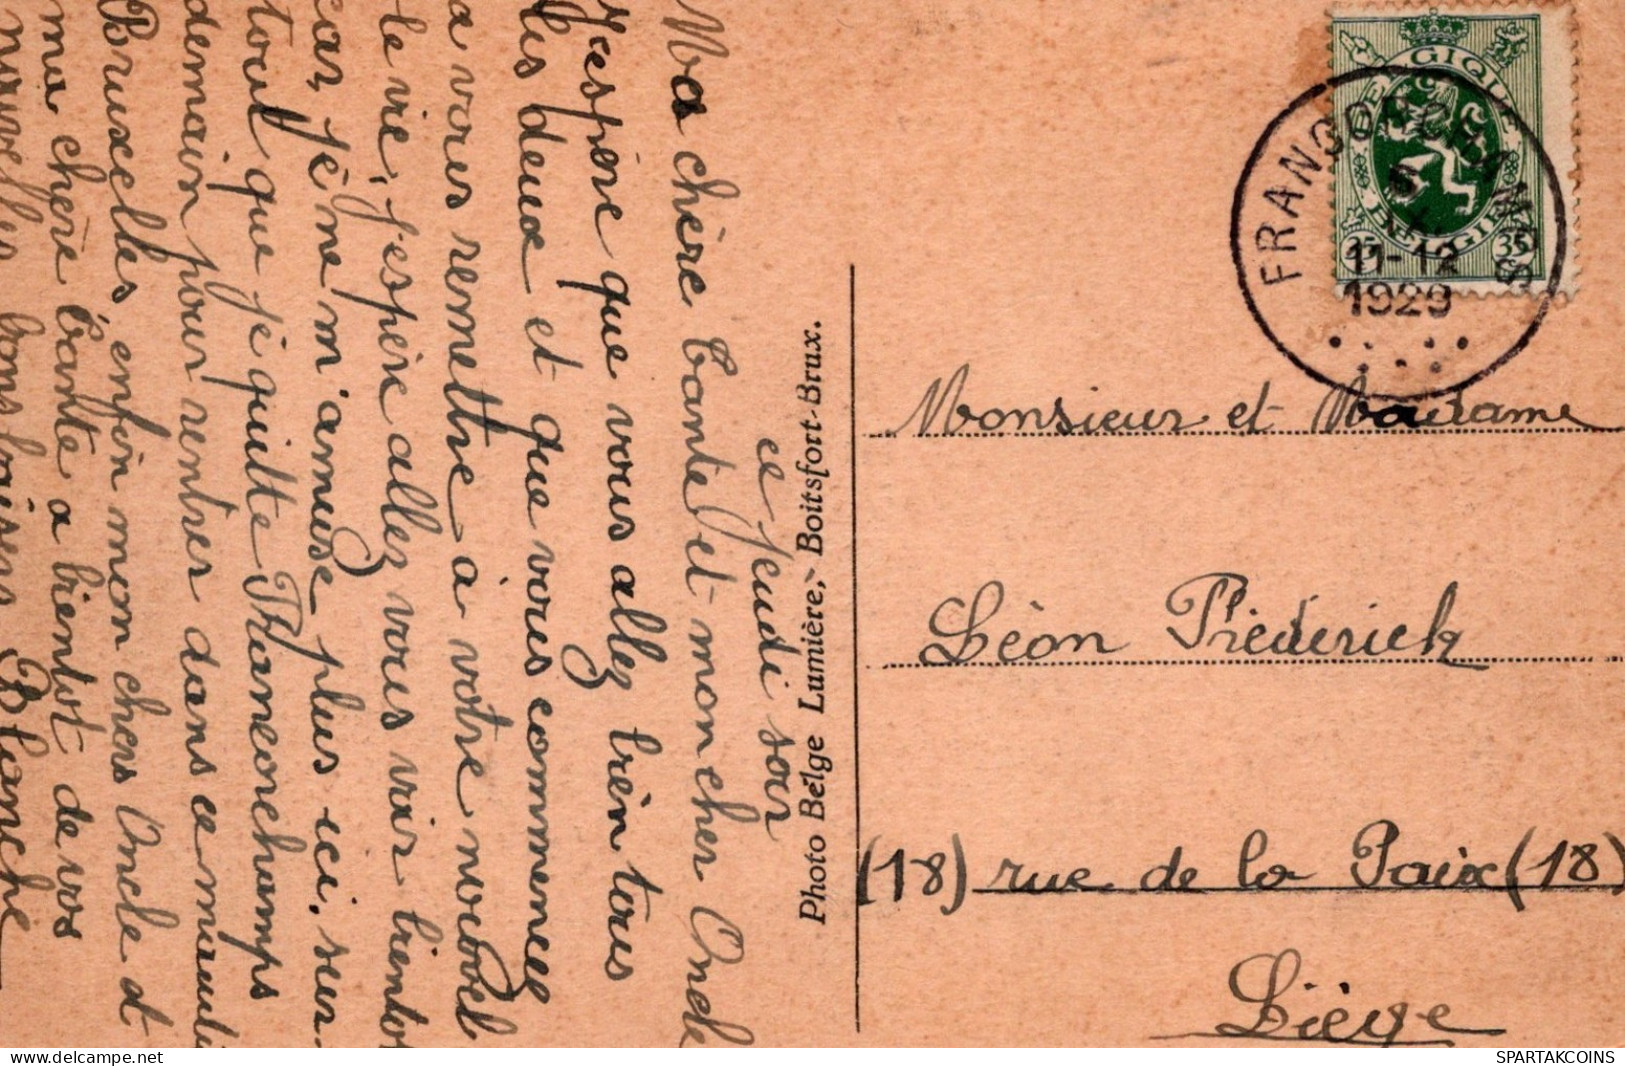 ce jeudi soir
Ma chère tante et mon cher Oncle
J'espère que vous allez bièn tous
les deux et que vous commencez
a vous remettre à votre nouvel
le vie, j'espère allez vous voir bientot
car, je ne m'amuse plus ici, sur-
tout que je quitte Franconchamps
demain pour rentrer dans ce
Bruxelles, enfin mon chers Oncle et
ma chère tante a bientot de vos
nouvelles bons baisers Blanche
Photo Belge Lumière, - Boitsfort-Brux.
BELGIQUE
BELGIE
35 35
FRANCORCHAMPS
5
11-12
1929
Monsieur et Madame
Lèon Fréderick
(18) rue de la Paix (18)
Liège
SPARTAKCOINS